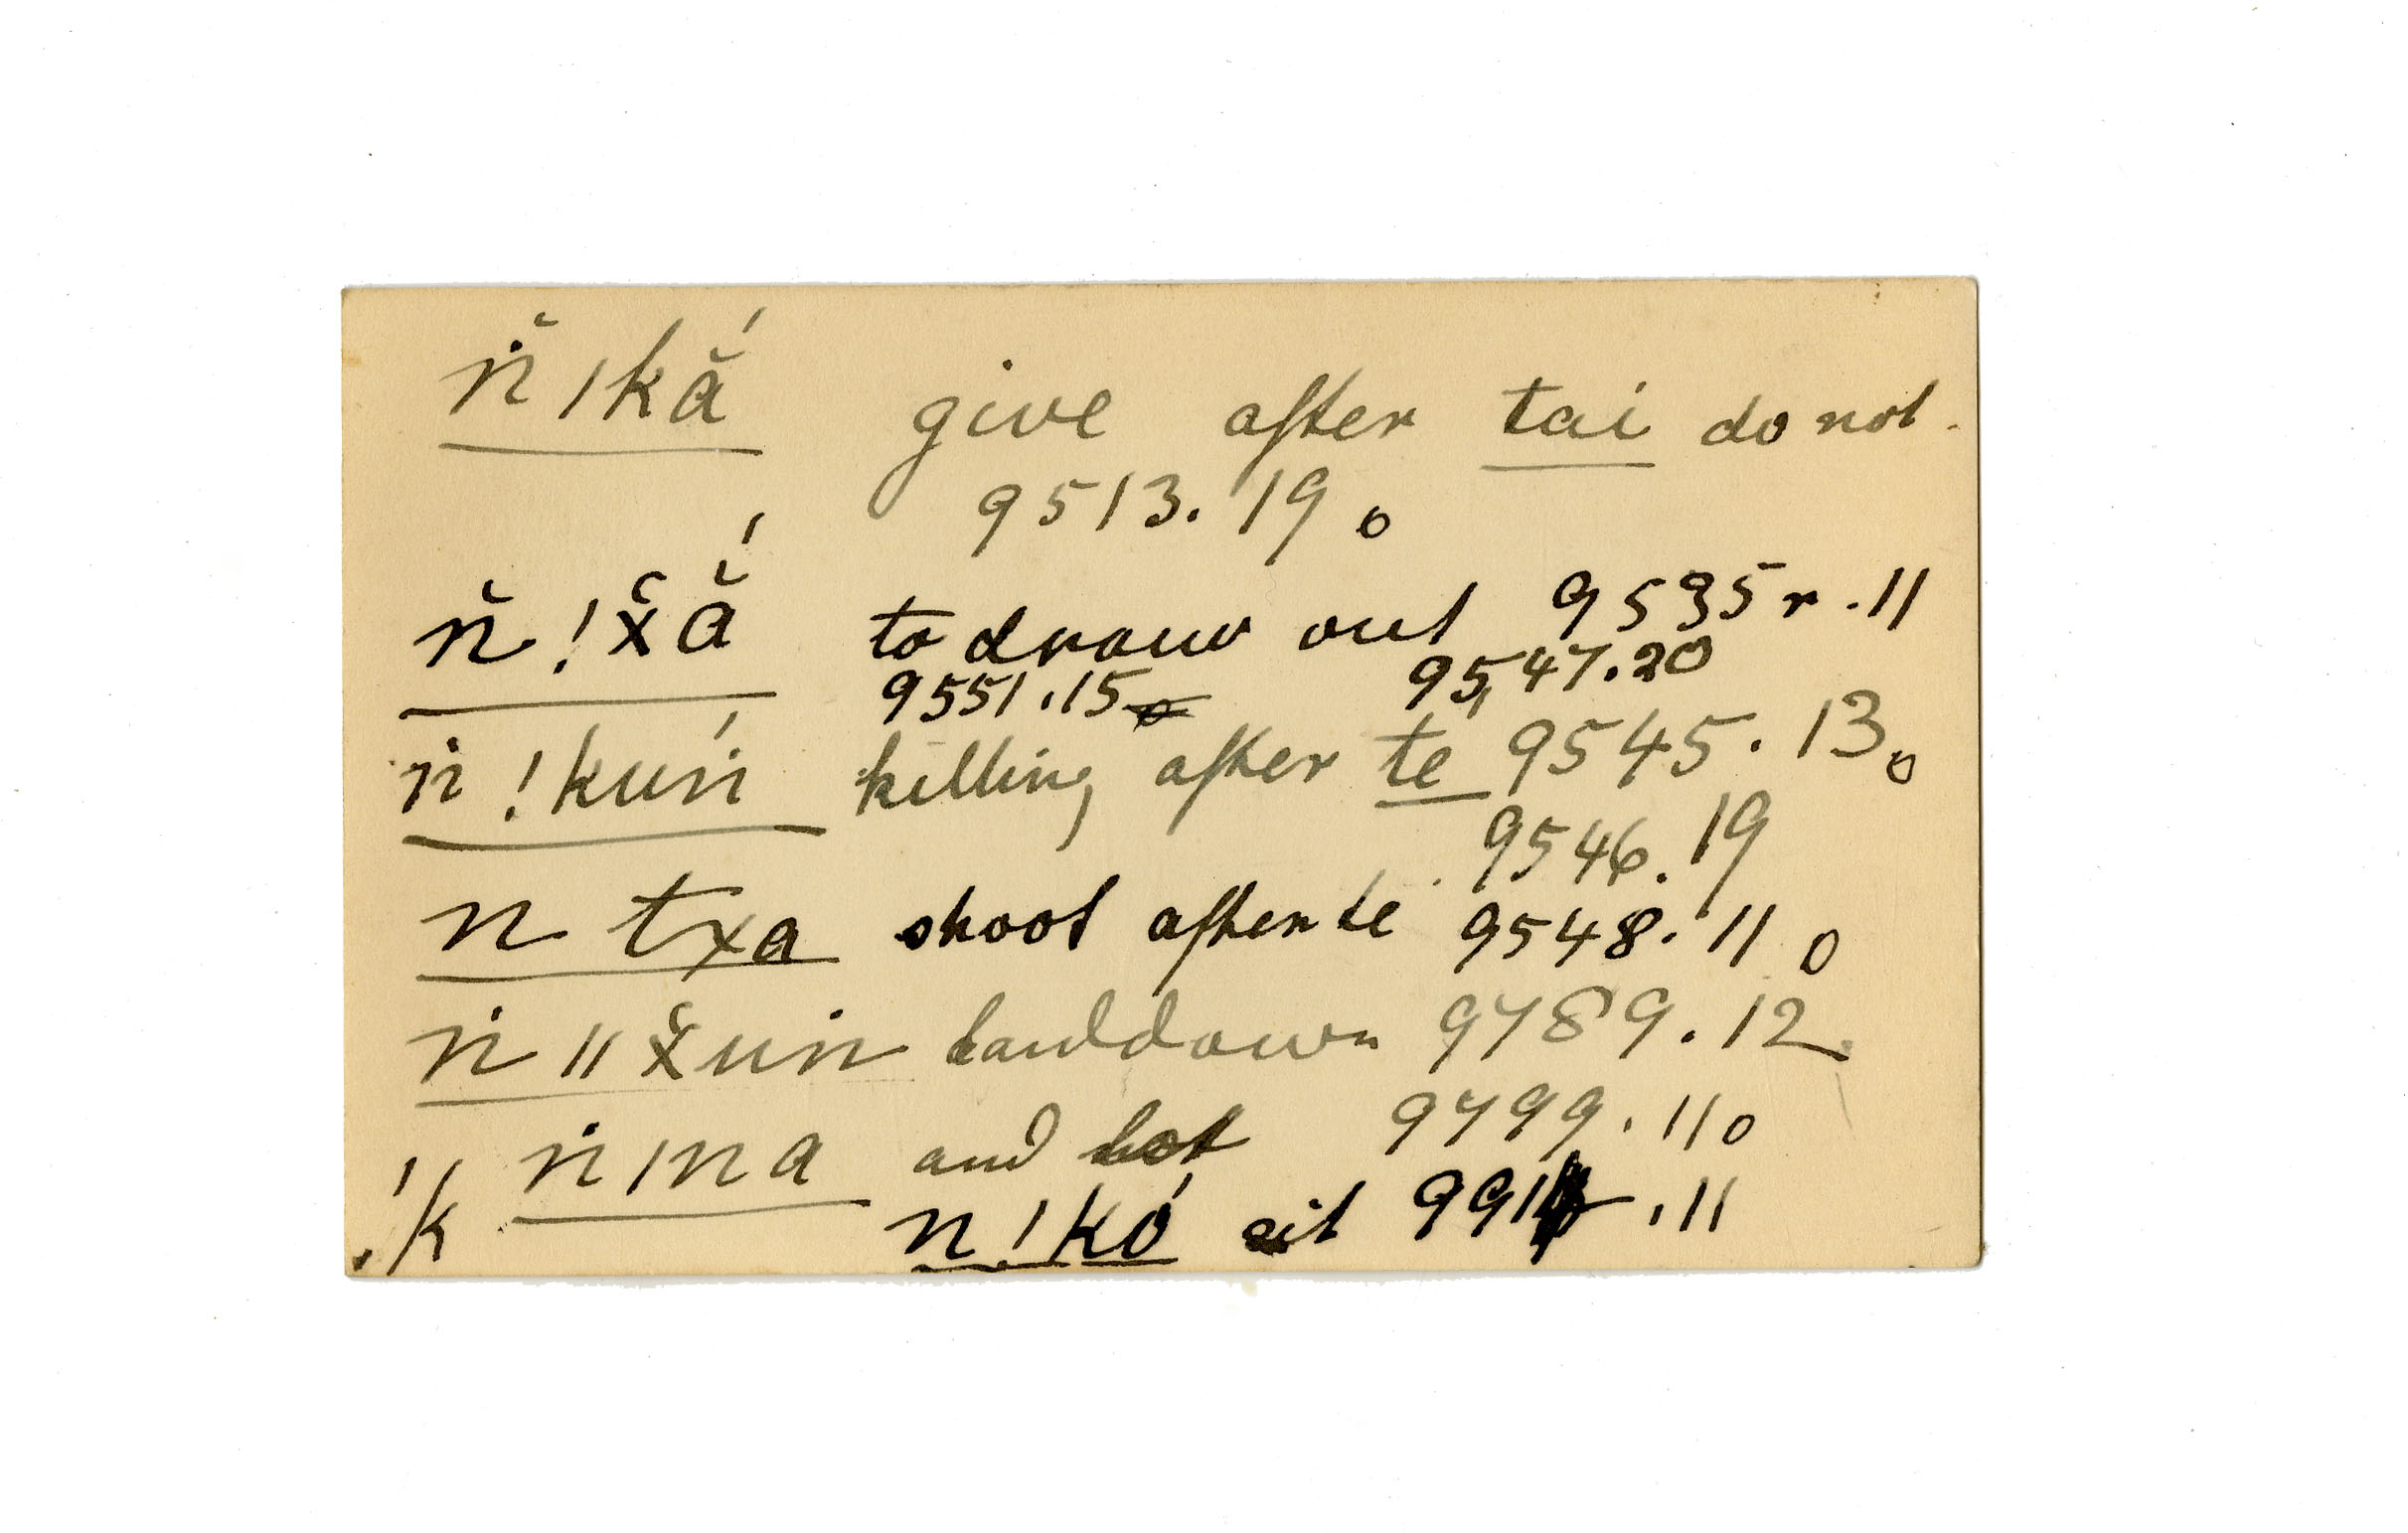 ṅ̆ ǀkắ give after tai do not.
9513.19 o
n̆ !x̌ắ to draw out 9535r.11
9551.15 9547.20
ṅ !kúṅ killing after te 9545.13 o
9546.19
n txa shoot after te 9548.11 o
ṅ ǁx̌uṅ 9789.12
ṅ ǀna and 9799.11 o
!k n !kó sit .11